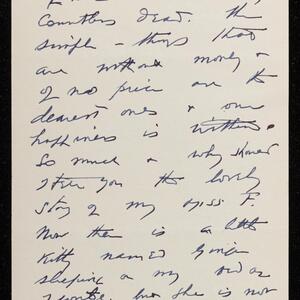 Countless dead. The
simple – things that
are without money &
of no price are the
dearest ones & our
happiness is
So much & why should
I tell you the lovely
story of my Miss F.
Now there is a little
Kitty named Ginger
sleeping on my
I write, but she is not